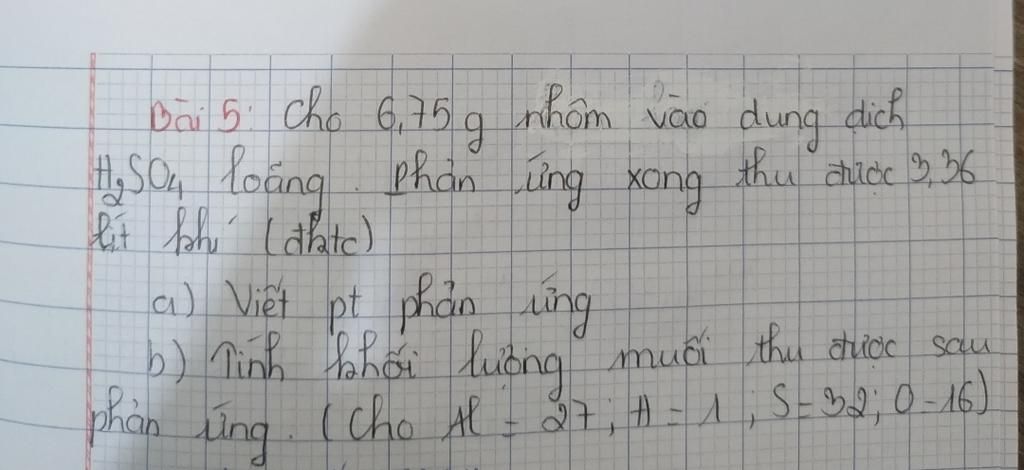 Bài 5: Cho 6,75 g nhôm vào dung dịch
H₂SO₄ loãng. Phản ứng xong thu được 3,36
lít khí (đktc)
a) Viết pt phản ứng
b) Tính khối lượng muối thu được sau
phản ứng. (Cho Al = 27; H = 1; S = 32; O = 16)